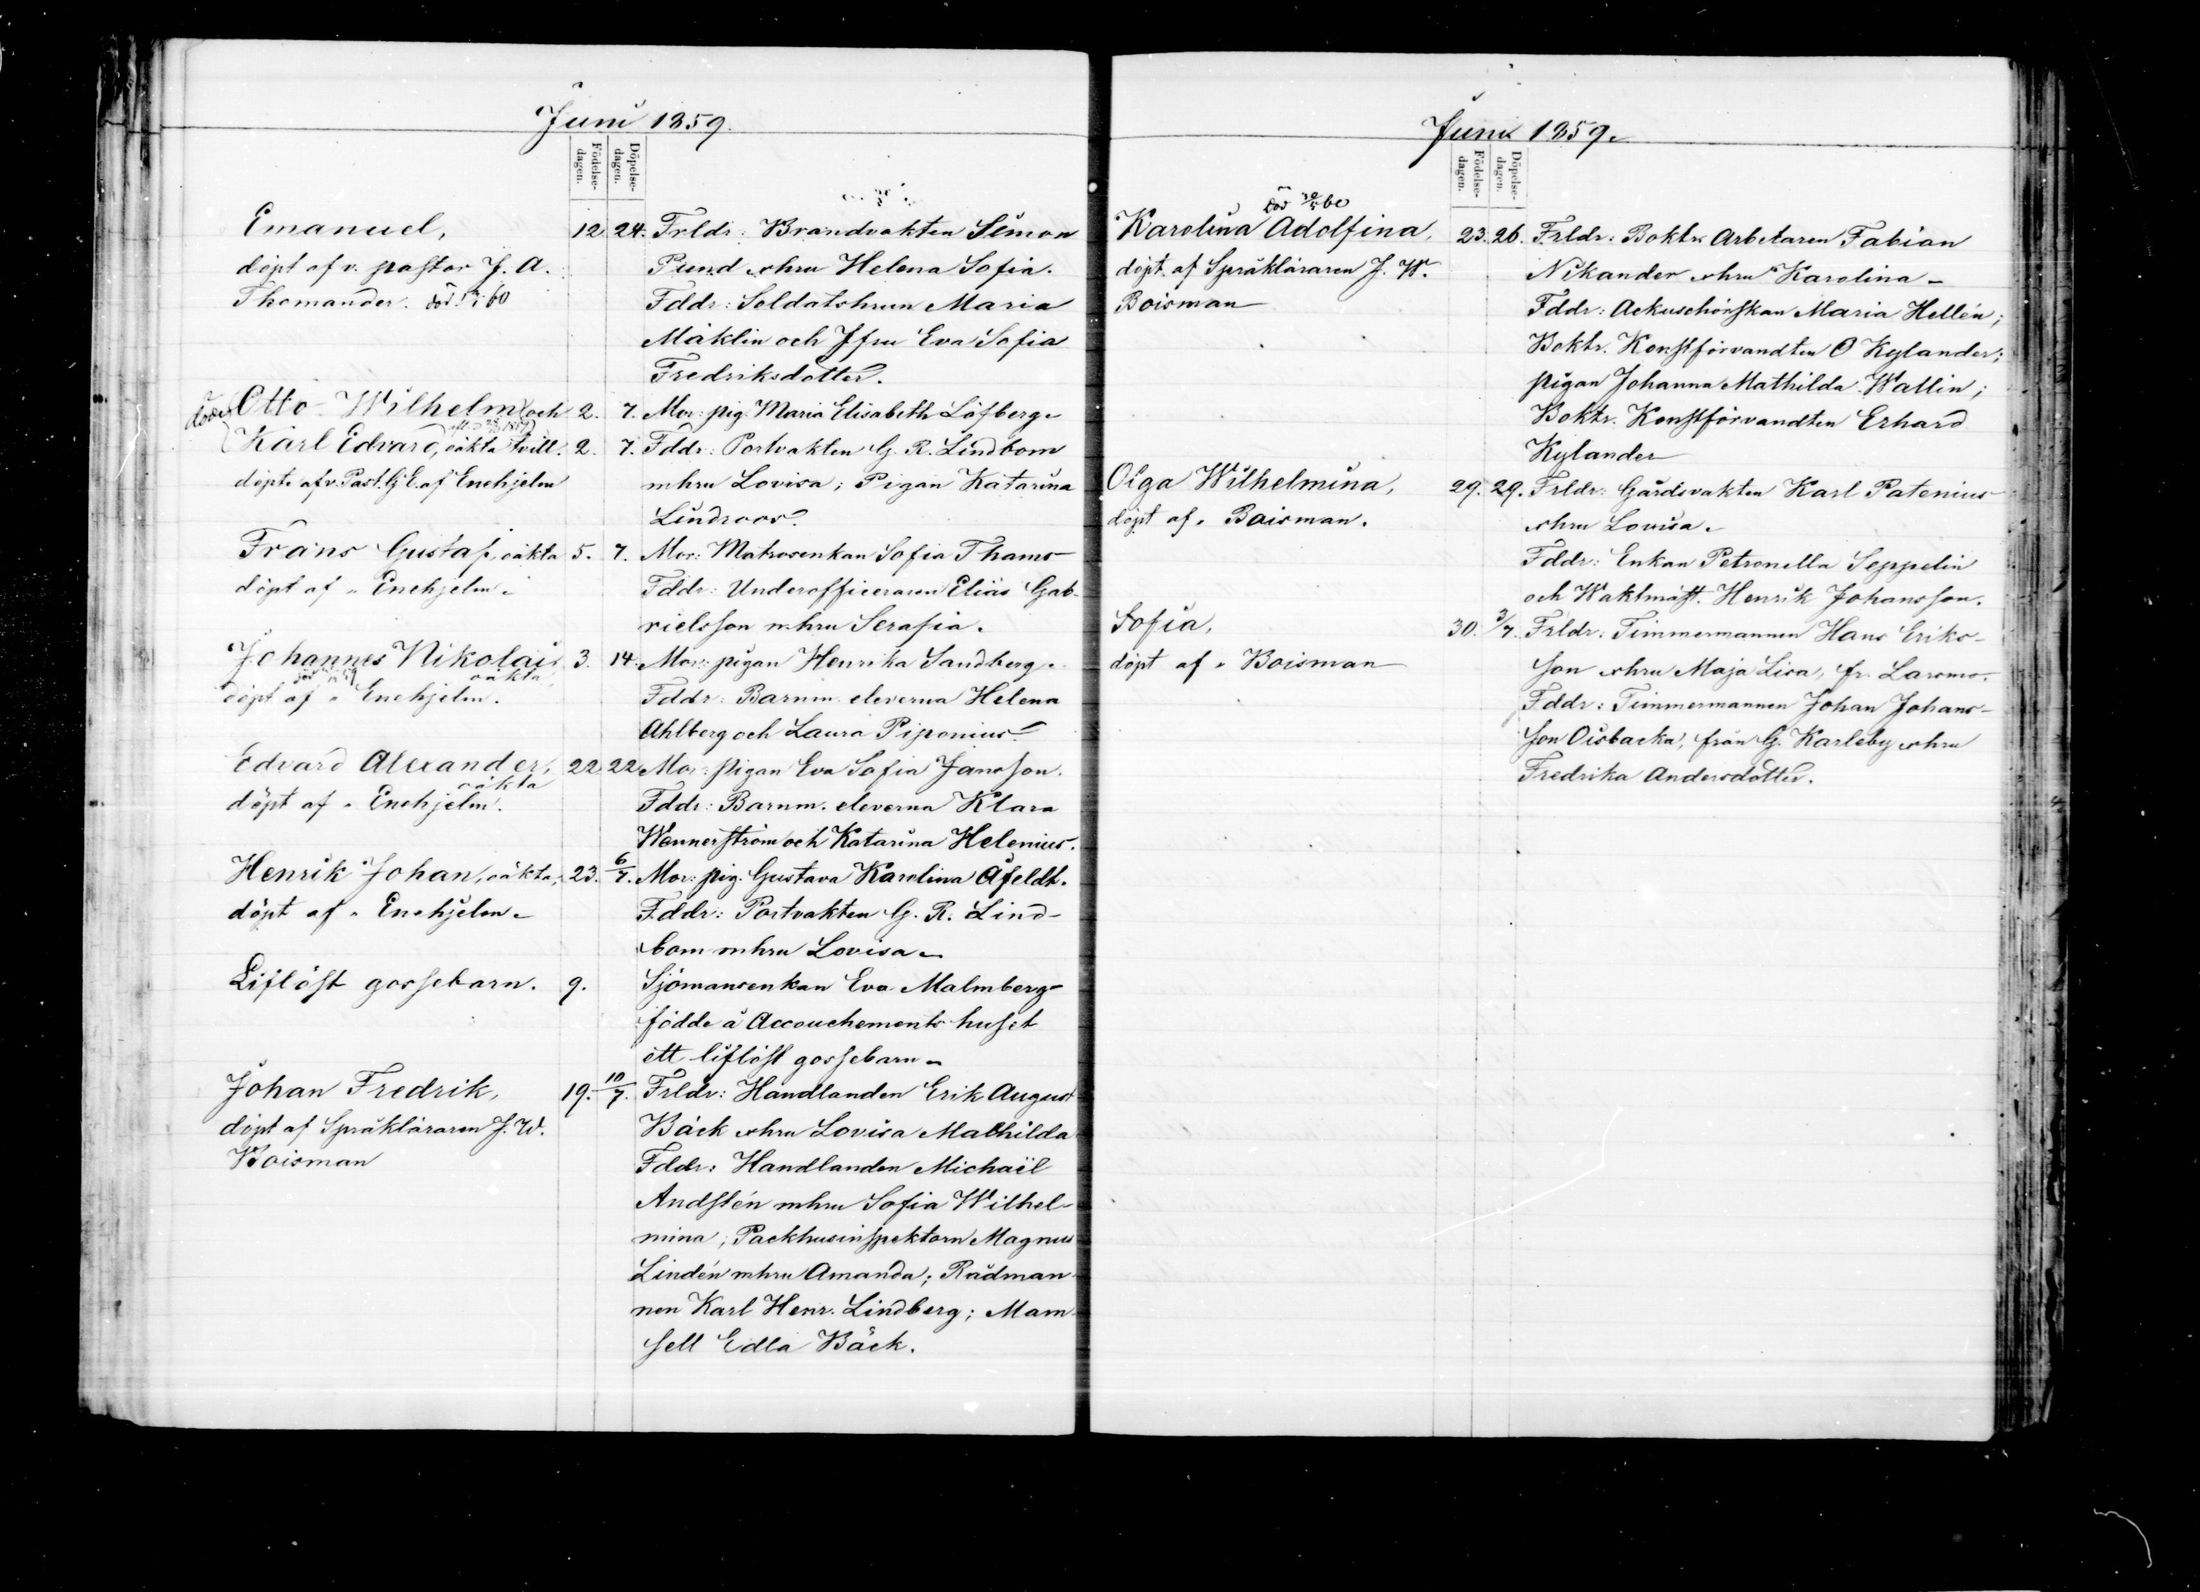 Juni 1859.
Födelse-dagen. Döpelse-dagen.
Emanuel, 12. 24. Frldr: Brandvakten Simon
döpt af v. pastor J. A. Pund o hru Helena Sofia.
Thomander. död 60 Fddr: Soldatshrun Maria
Mäklin och Jfru Eva Sofia
Fredriksdotter.
Otto Wilhelm och 2. 7. Mor: pig. Maria Elisabeth Löfberg.
Karl Edvard, oäkta tvill. 2. 7. Fddr: Portvakten G. R. Lindbom
döpte af v. Past. G. E. af Enehjelm mhru Lovisa; Pigan Katarina
Lindroos.
Frans Gustaf, oäkta 5. 7. Mor: Matrosenkan Sofia Thams
döpt af " Enehjelm. Fddr: Underofficeraren Elias Gab-
rielsson mhru Serafia.
Johannes Nikolai 3. 14. Mor: pigan Henrika Sandberg.
oäkta
döpt af " Enehjelm. Fddr: Barnm. eleverna Helena
Ahlberg och Laura Piponius.
Edvard Alexander, 22. 22. Mor: pigan Eva Sofia Jansson.
oäkta
döpt af " Enehjelm. Fddr: Barnm. eleverna Klara
Wennerström och Katarina Helenius.
Henrik Johan, oäkta, 23. 6/7. Mor: pig. Gustava Karolina Afeldt.
döpt af " Enehjelm. Fddr: Portvakten G. R. Lind-
bom mhru Lovisa.
Liflöst gossebarn. 9. Sjömansenkan Eva Malmberg
födde å Accouchements huset
ett liflöst gossebarn.
Johan Fredrik, 19. 10/7. Frldr: Handlanden Erik August
döpt af Språkläraren J. W. Bäck o hru Lovisa Mathilda
Boisman Fddr: Handlanden Michaël
Andstén mhru Sofia Wilhel-
mina; Packhusinspektorn Magnus
Lindén mhru Amanda; Rådman-
nen Karl Henr. Lindberg; Mam-
sell Edla Bäck.
Juni 1859.
Födelse-dagen. Döpelse-dagen.
död 60
Karolina Adolfina, 23. 26. Frldr: Boktr. Arbetaren Fabian
döpt af Språkläraren J. W. Nikander o hru Karolina
Boisman Fddr: Ackuschörskan Maria Hellén;
Boktr. Konstförvandten O Kylander;
pigan Johanna Mathilda Wallin;
Boktr. Konstförvandten Erhard
Kylander
Olga Wilhelmina, 29. 29. Frldr: Gårdsvakten Karl Patenius
döpt af " Boisman. o hru Lovisa.
Fddr: Enkan Petronella Seppelin
och Waktmäst. Henrik Johansson.
Sofia, 30. 3/7. Frldr: Timmermannen Hans Eriks-
döpt af " Boisman son o hru Maja Lisa, fr. Larsmo.
Fddr: Timmermannen Johan Johans-
son Oisbacka, från G. Karleby o hru
Fredrika Andersdotter.